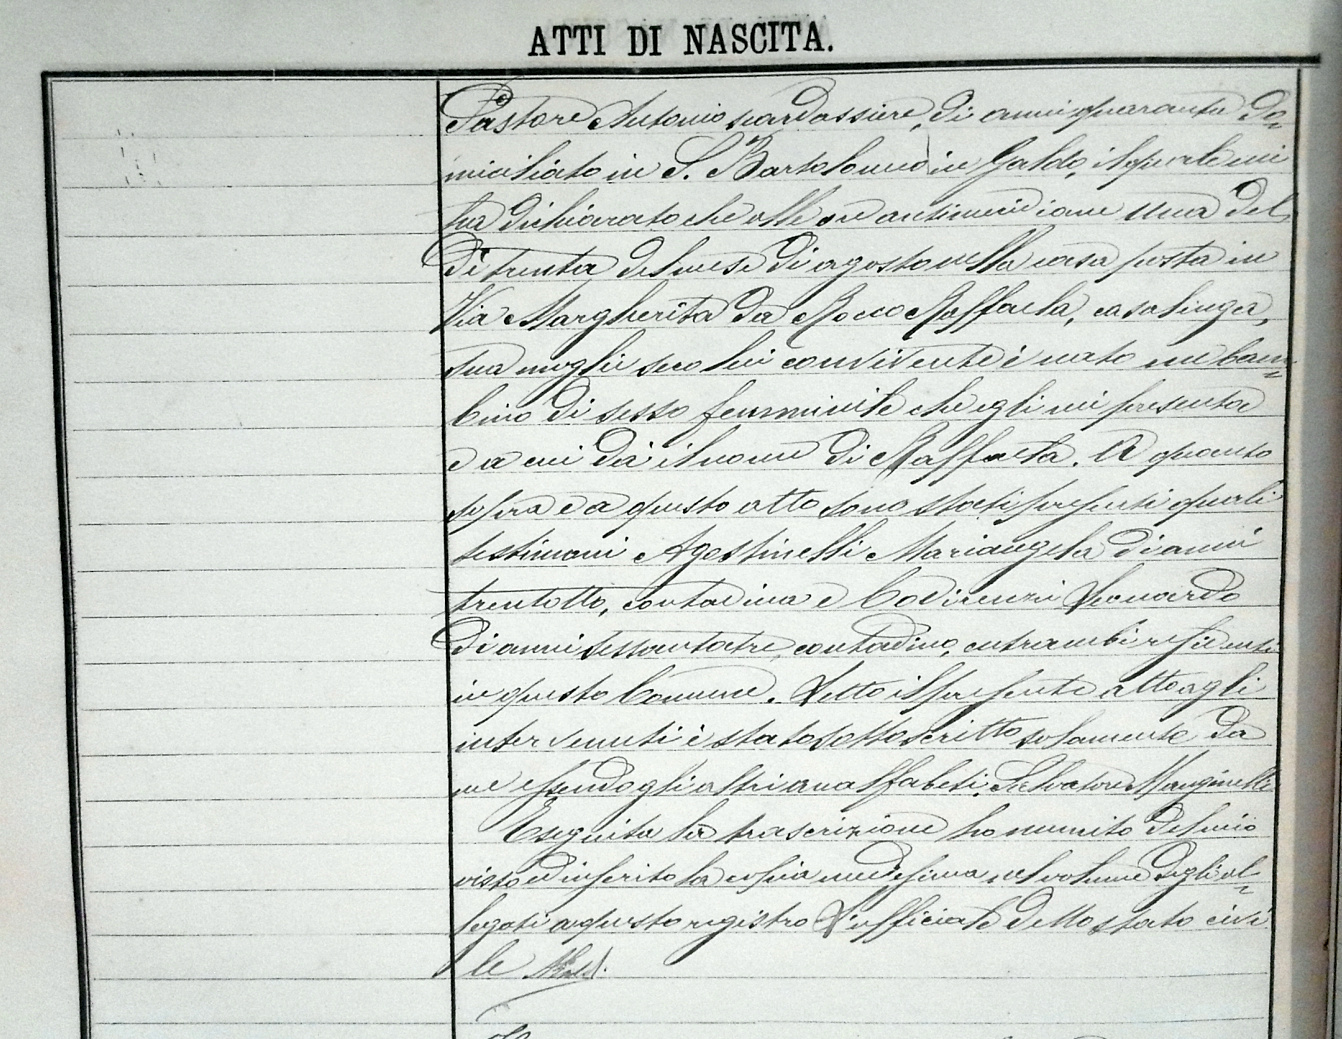 ATTI DI NASCITA.
Pastore Antonio bardassiere, di anni quaranta do=
miciliato in S. Bartolomeo in Galdo, il quale mi
ha dichiarato che alle ore antimeridiane una del
dì trenta del mese di agosto nella casa posta in
Via Margherita da Rocco Raffaela, casalinga,
sua moglie seco lui convivente è nato un bam=
bino di sesso femminile che egli mi presenta
e a cui dà il nome di Raffaela. A quanto
sopra e a questo atto sono stati presenti quali
testimoni Agostinelli Mariangela di anni
trentotto, contadina e Codirenzi Leonardo
di anni sessantatre, contadino, entrambi residenti
in questo Comune. Letto il presente atto agli
intervenuti è stato sottoscritto solamente da
me essendo gli altri analfabeti. Salvatore Manginelli
Eseguita la trascrizione ho munito del mio
visto ed inserito la copia medesima nel volume degli al=
legati a questo registro L'ufficiale dello stato civi
le